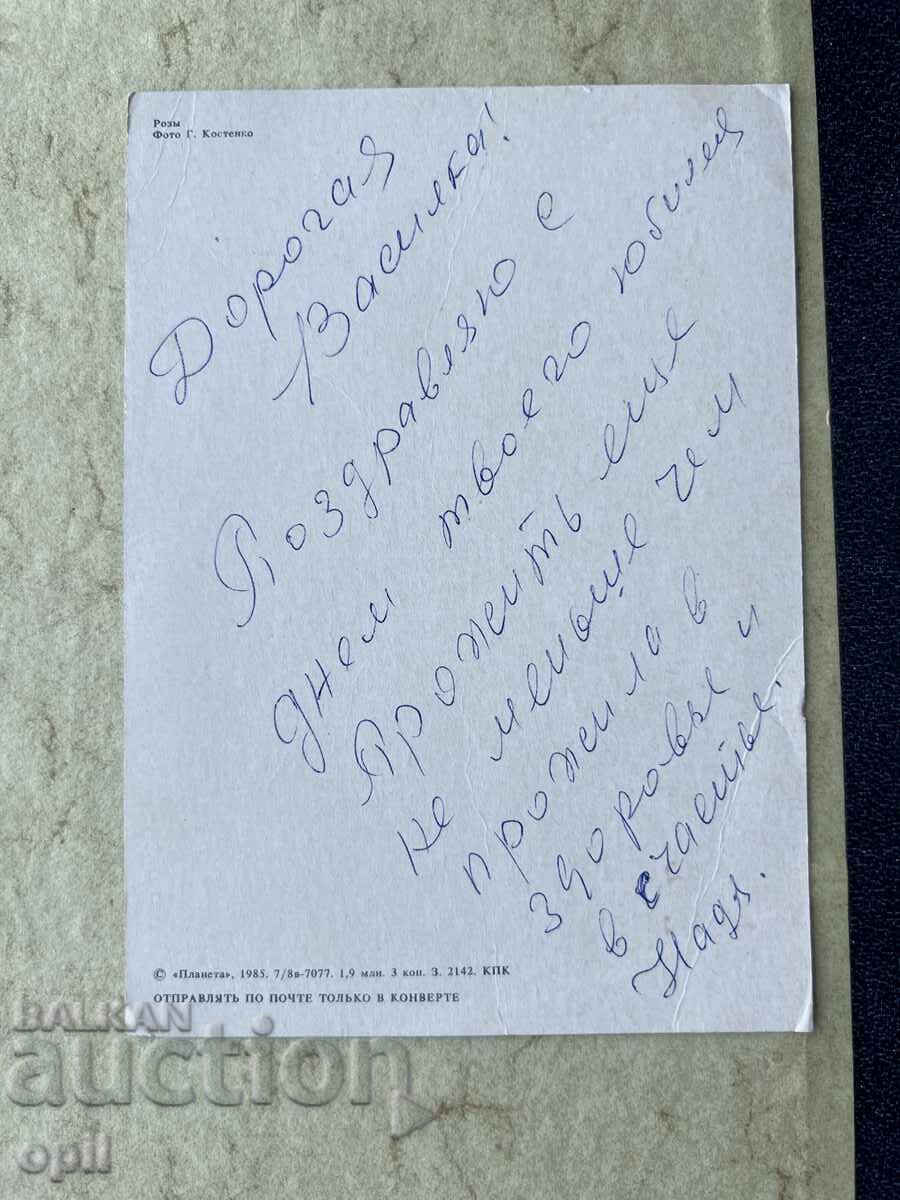 Розы
Фото Г. Костенко
Дорогая
Василка!
Поздравляю с
днем твоего юбилея
Прожить еще
не меньше чем
прожила в
здоровье и
в счастье.
Надя.
© «Планета», 1985. 7/8в-7077. 1,9 млн. 3 коп. З. 2142. КПК
ОТПРАВЛЯТЬ ПО ПОЧТЕ ТОЛЬКО В КОНВЕРТЕ
BALKAN
auction
opil